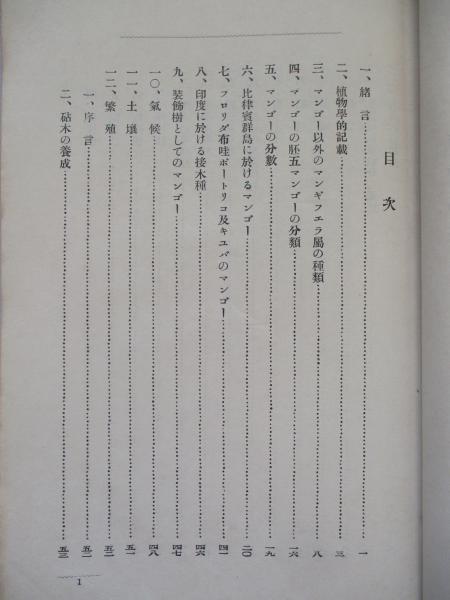 目次
一、緒言…………一
二、植物學的記載…………三
三、マンゴー以外のマンギフエラ屬の種類…………八
四、マンゴーの胚五マンゴーの分類…………一六
五、マンゴーの分數…………一九
六、比律賓群島に於けるマンゴー…………二〇
七、フロリダ布哇ポートリコ及キユバのマンゴー…………四一
八、印度に於ける接木種…………四六
九、裝飾樹としてのマンゴー…………四七
一〇、氣候…………四八
一一、土壤…………五一
一二、繁殖…………五二
一、序言…………五二
二、砧木の養成…………五三
1